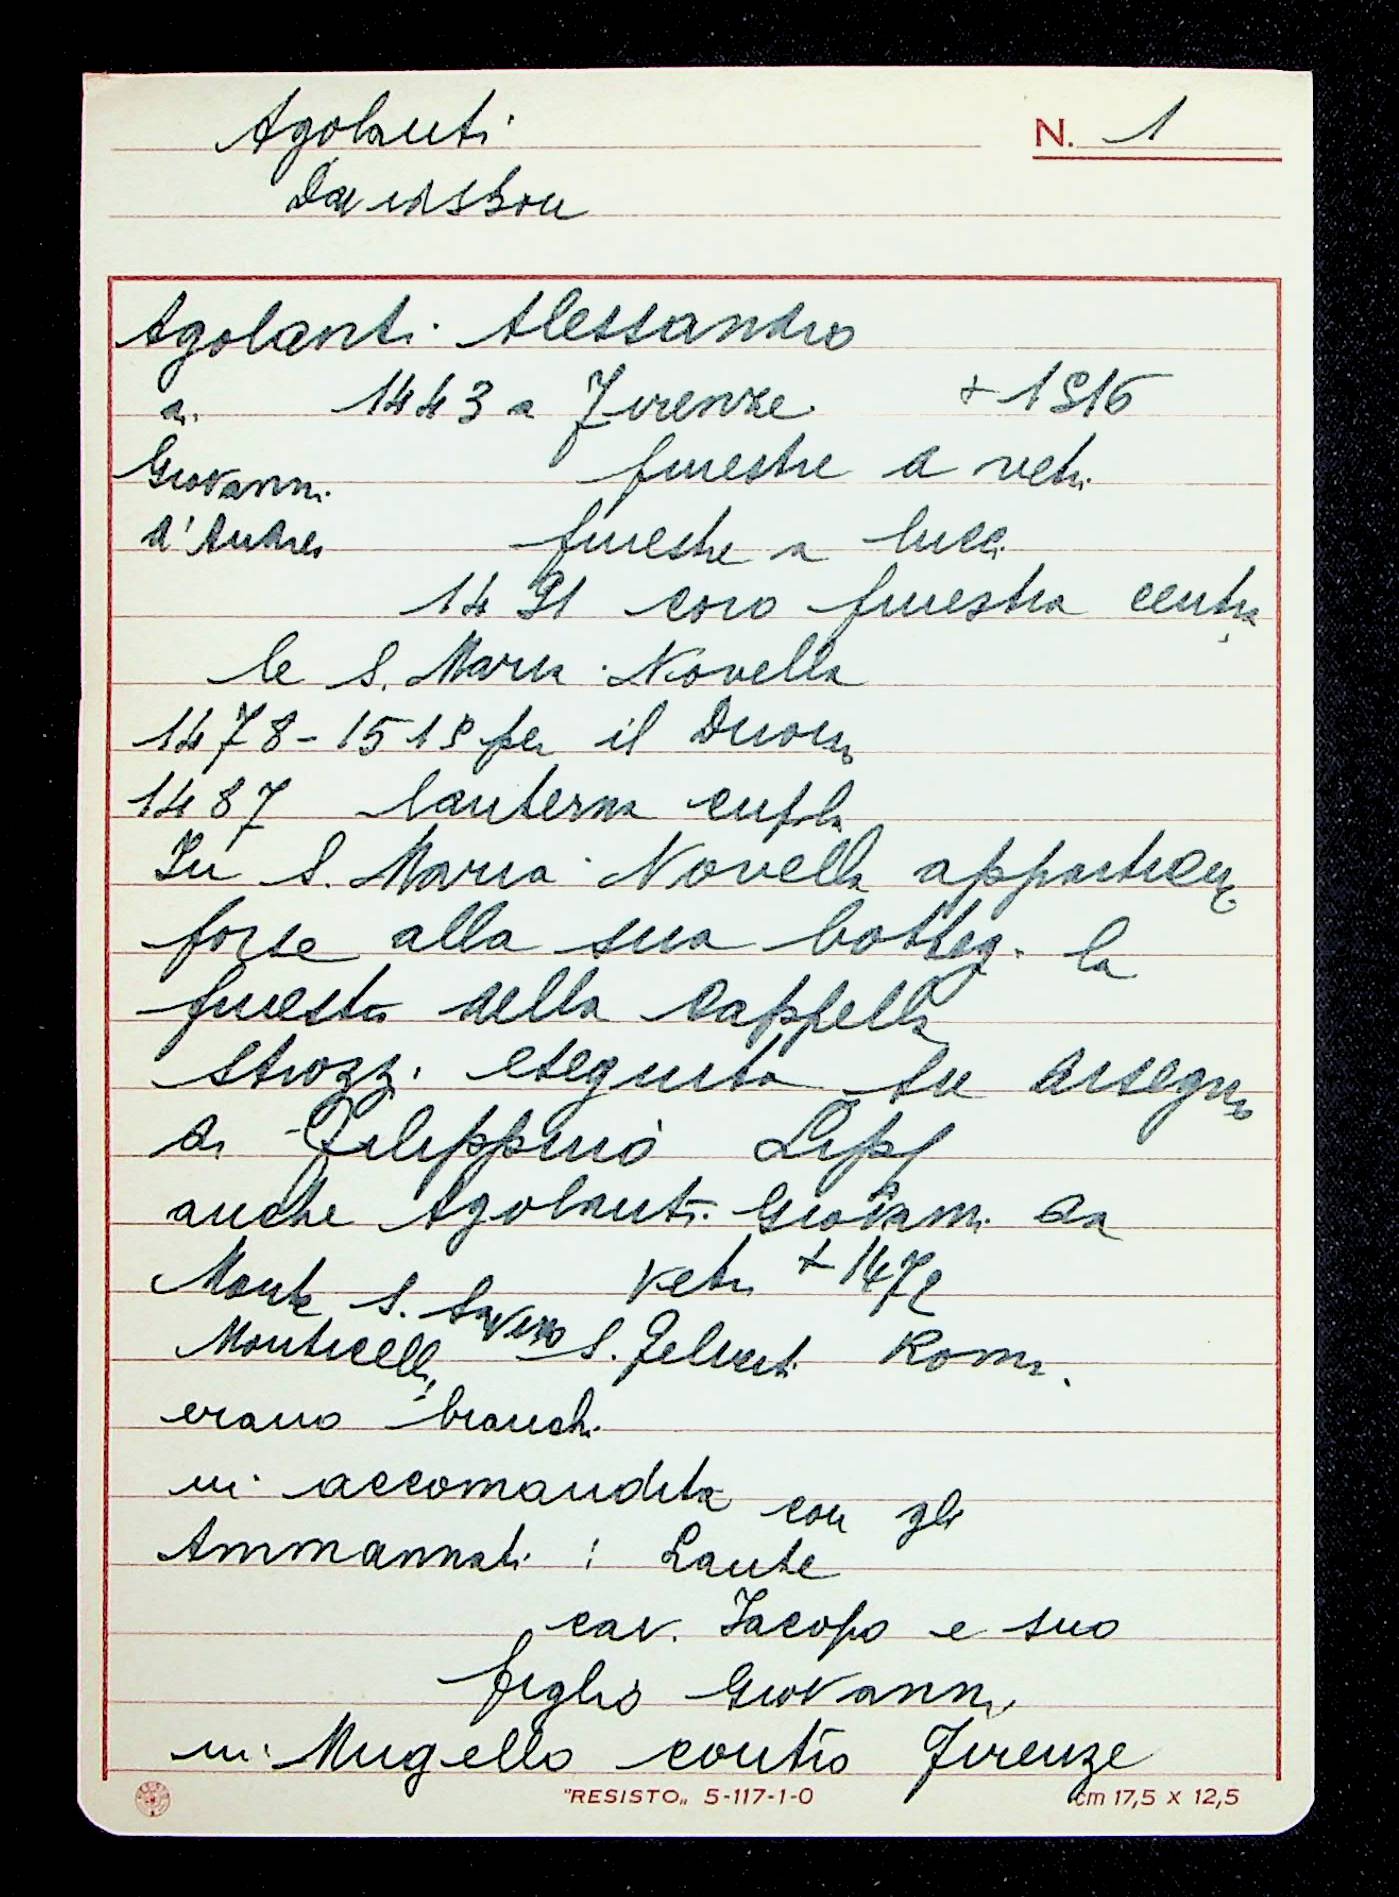 Agolanti
N. 1
Davidsohn
Agolanti Alessandro
di 1443 a Firenze + 1516
Giovanni finestre a vetri
d'Andrea finestre a luce
1491 coro finestra centra
le S. Maria Novella
1478-1515 per il Duomo
1487 lanterna cupola
In S. Maria Novella appartiene
forse alla sua bottega la
finestra della Cappella
Strozzi eseguita su disegno
di Filippino Lippi
anche Agolanti Giovanni da
Monte S. Savino vetri + 1472
Monticelli, S. Felicita Roma.
erano bianchi
in accomandita con gli
Ammannati : Lante
cav. Jacopo e suo
figlio Giovanni
in Mugello contro Firenze
"RESISTO„ 5-117-1-0
cm 17,5 x 12,5